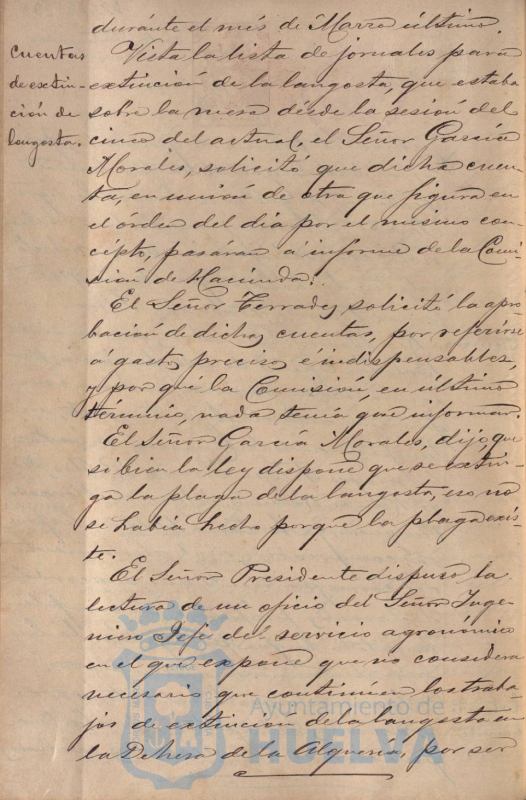 durante el més de Marzo último.
Cuentas
de extin-
ción de
langosta.
Vista la lista de jornales para
extinción de la langosta, que estaba
sobre la mesa désde la sesión del
cinco del actual, el Señor García
Morales, solicitó que dicha cuen
ta, en unión de otra que figura en
el órden del dia por el mismo con-
cépto, pasáran á informe de la Comi
sión de Hacienda.
El Señor Terrades solicitó la apro
bación de dichas cuentas, por referirse
á gastos precisos é indispensables,
y por qué la Comisión, en último
término, nada tenia que informar.
El Señor García Morales, dijo, que
si bien la ley dispone que se extin-
ga la plaga de la langosta, eso no
se había hecho porque la plaga exis-
te.
El Señor Presidente dispuso la
lectura de un oficio del Señor Inge
niero Jefe del servicio agronómico
en el que expone que no considera
necesario que continúen los traba
jos de extinción de la langosta en
la Dehesa de la Alqueria, por ser
Ayuntamiento de
HUELVA